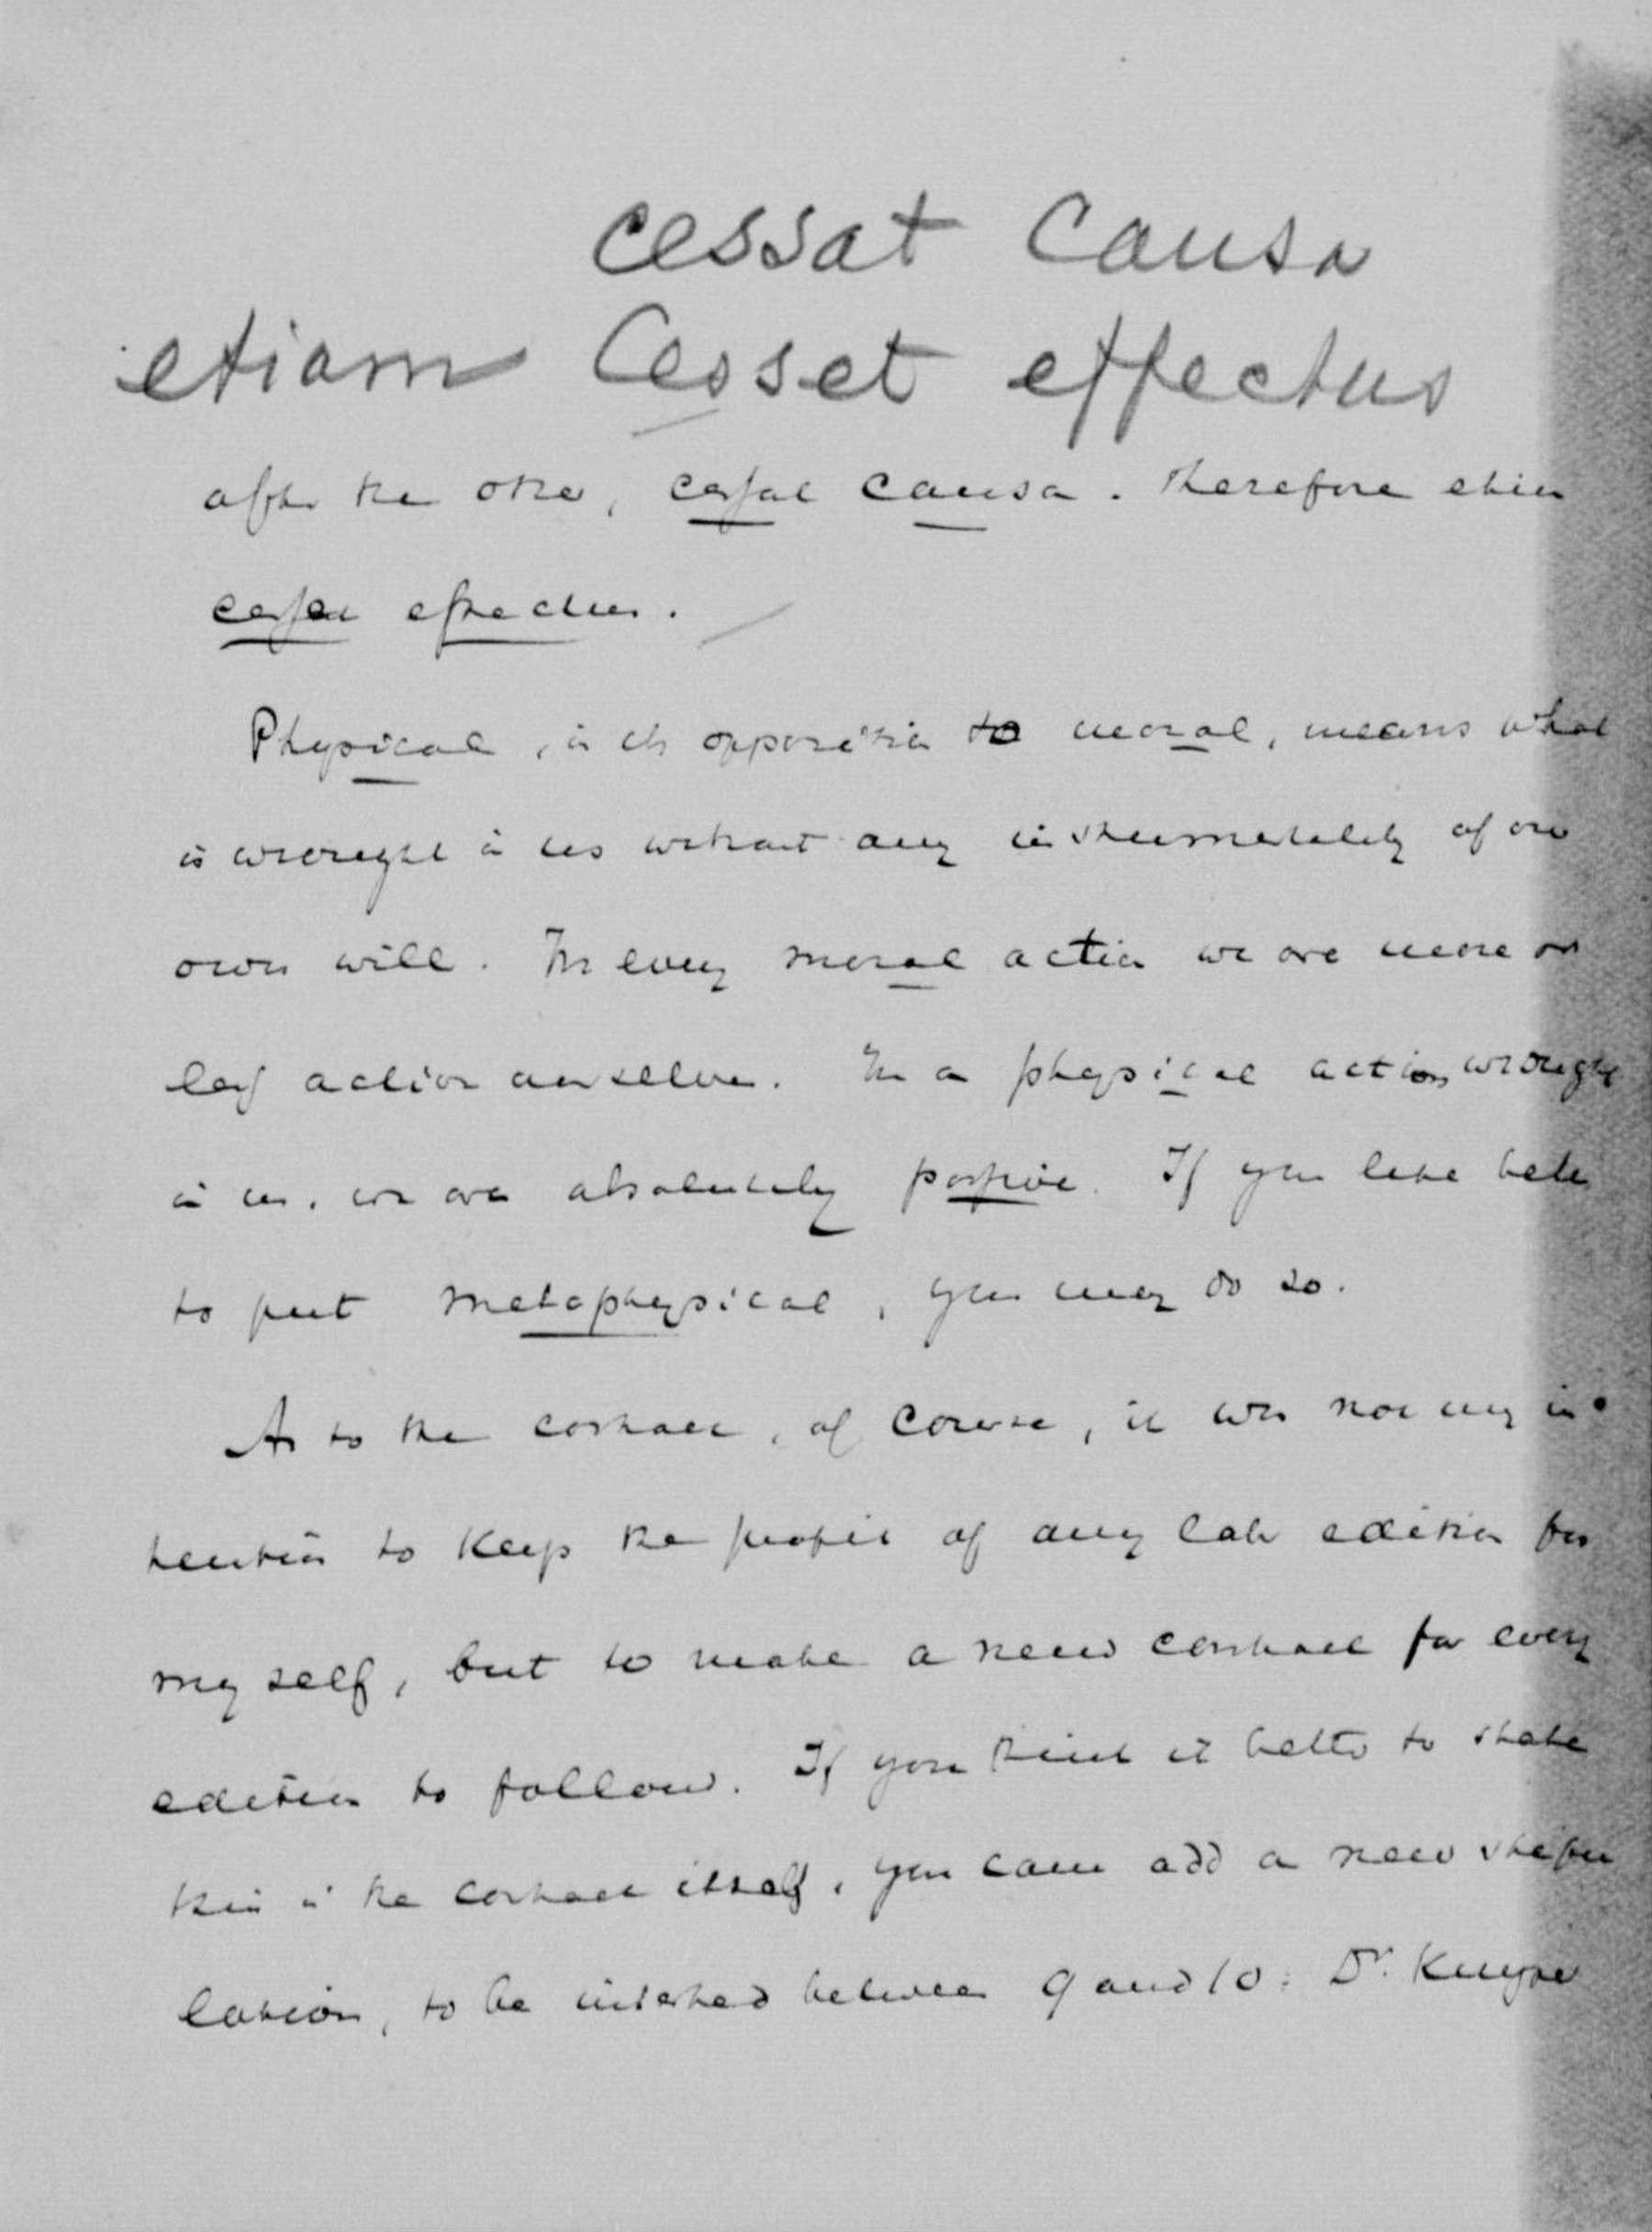 cessat causa
etiam Cesset effectus
after the other, cessat causa. Therefore etiam
cessat effectus.
Physical, in its opposition to moral, means what
is wrought in us without any instrumentality of our
own will. In every moral action we are more or
less active ourselves. In a physical action wrought
in us, we are absolutely passive. If you like better
to put metaphysical, you may do so.
As to the contract, of course, it was not my in
tention to keep the profit of any late edition for
my self, but to make a new contract for every
edition to follow. If you think it better to state
this in the contract itself, you can add a new stipu
lation, to be inserted between 9 and 10: Dr. Kuyper